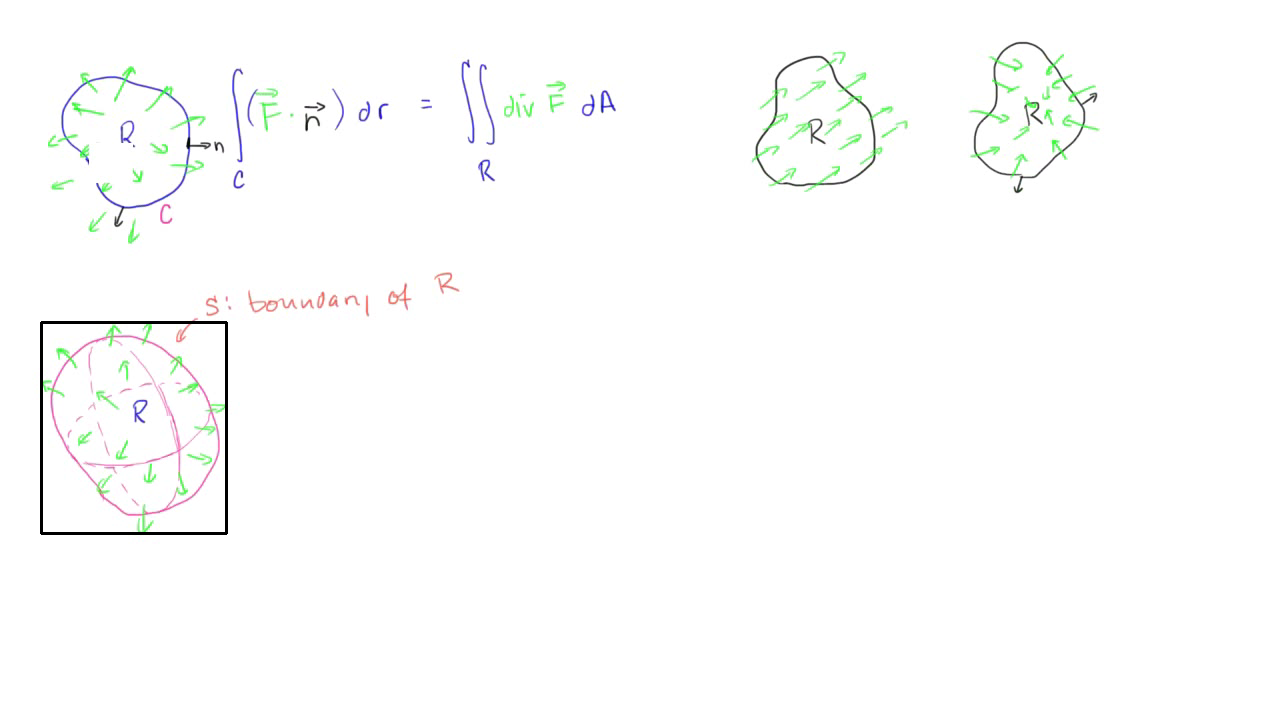 R.
n
C
∫_C (F⃗ · n⃗) dr = ∬_R div F⃗ dA
R
R
S: boundary of R
R